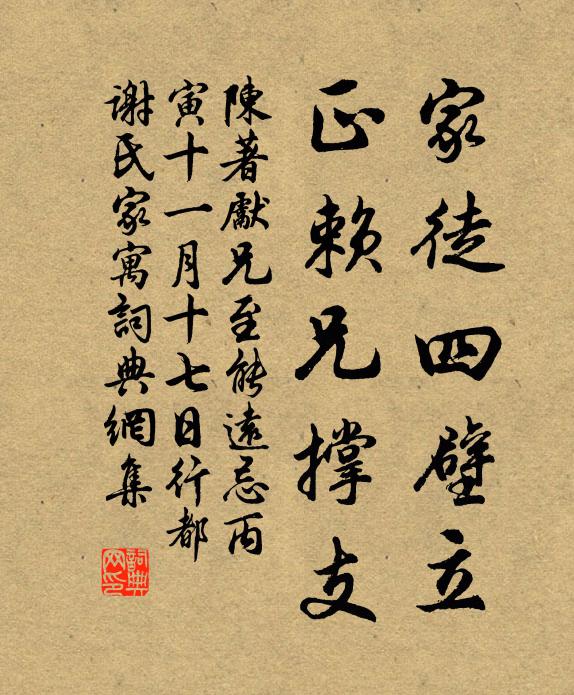 家徒四壁立
正賴兄撐支
陳著獻兄至能遠忌丙
寅十一月十七日行都
謝氏家寓詞典網集
詞典網印